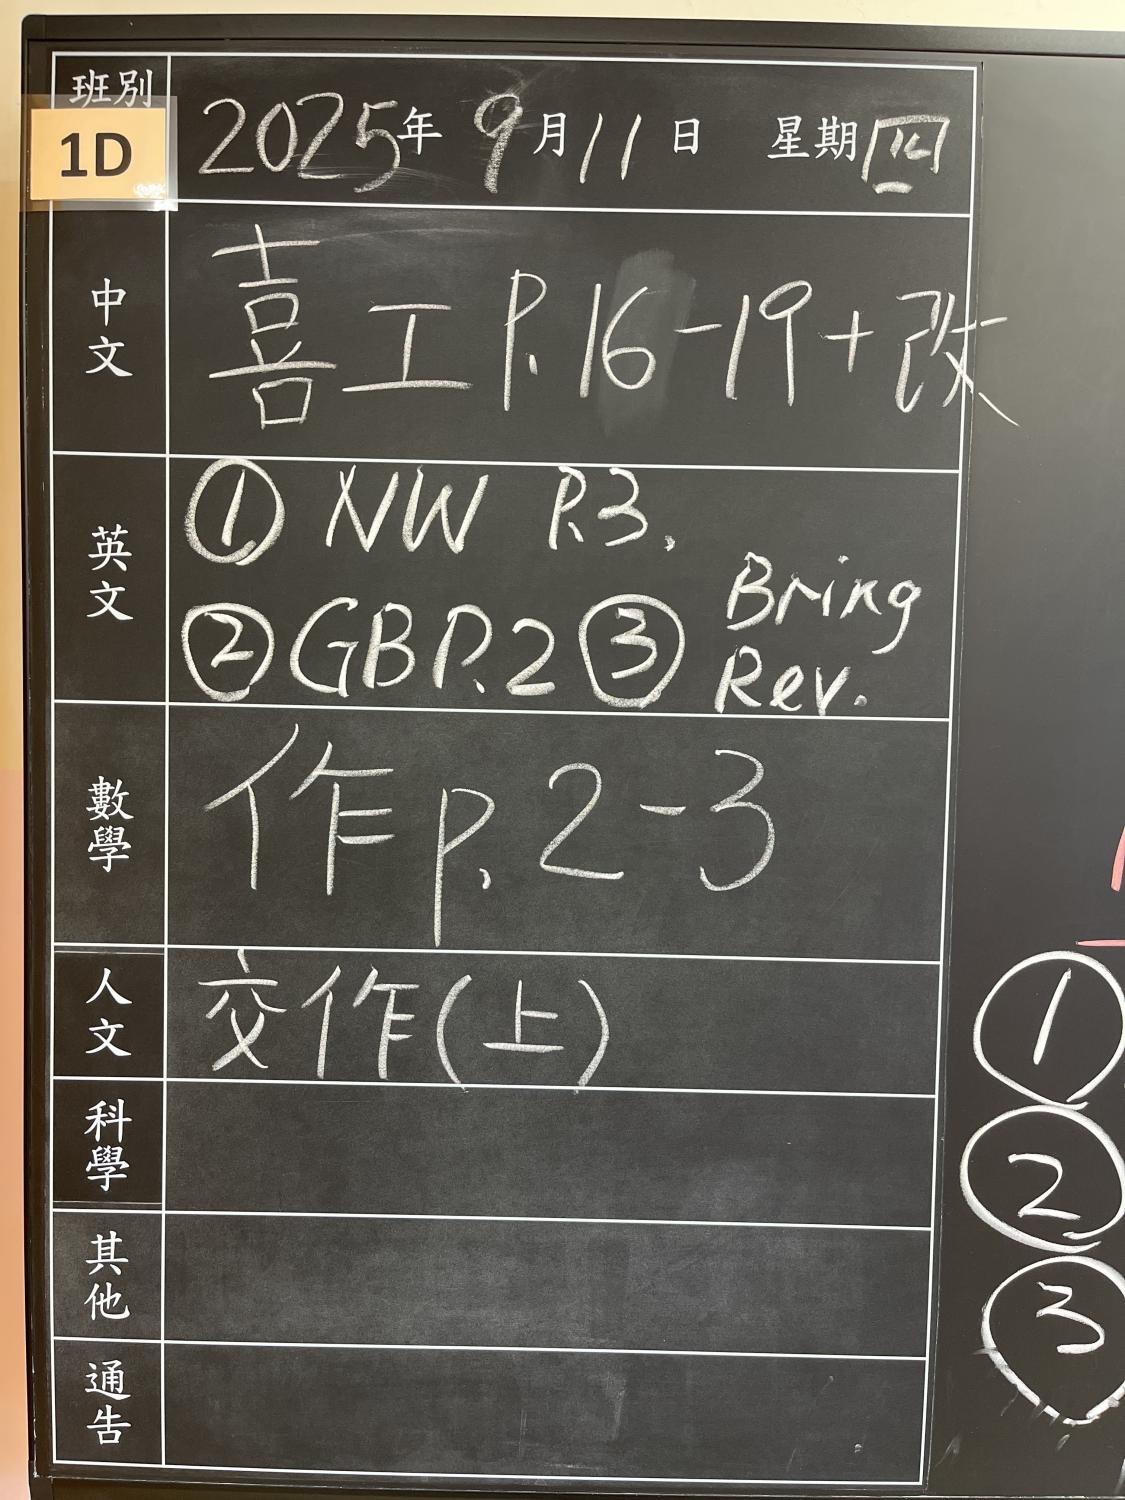 班別
1D
2025年 9月11日 星期四
中文
喜工 P.16-19+改
英文
① NW P.3.
② GB P.2 ③ Bring Rev.
數學
作 p.2-3
人文
交作(上)
科學
其他
通告
①
②
③